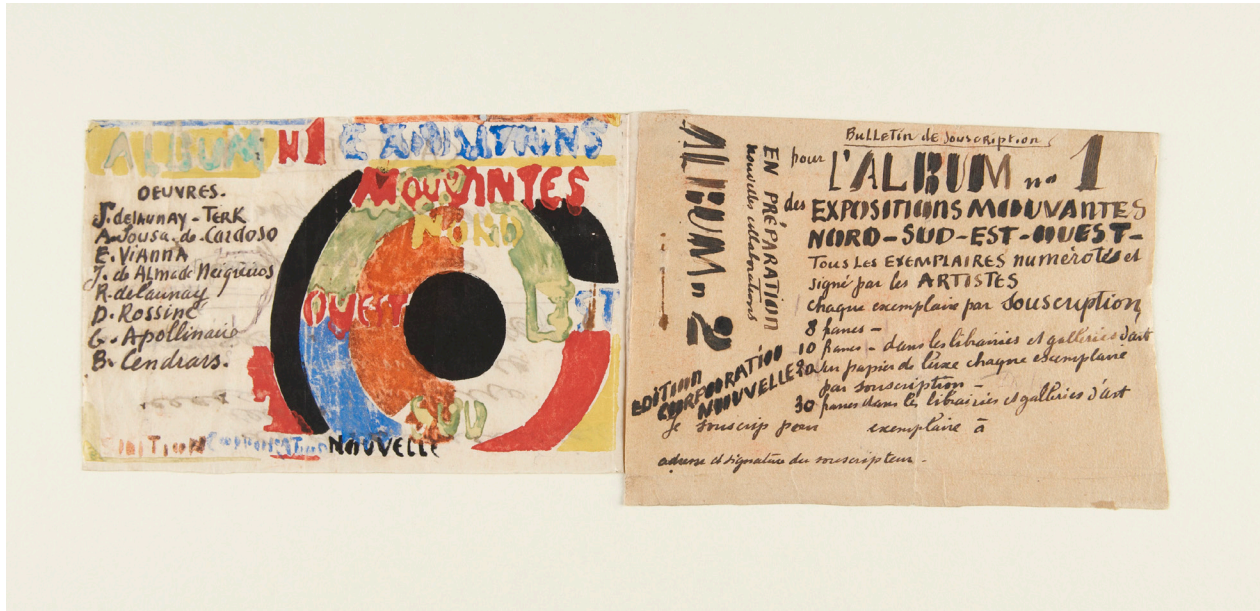 ALBUM N1 EXPOSITIONS
MOUVANTES
NORD
OUEST
EST
SUD
OEUVRES.
S. delAUNAY-TERK
A. Sousa. do. Cardoso
E. ViANNA
J. de Almade Neigreiros
R. delaunay
D. Rossiné
G. Apollinaire
B. Cendrars.
EDITION CORPORATION NOUVELLE
ALBUM n 2
EN PRÉPARATION
nouvelles collaborations
EDITION
CORPORATION
NOUVELLE
Bulletin de souscription
pour L'ALBUM no 1
des EXPOSITIONS MOUVANTES
NORD-SUD-EST-OUEST-
TOUS LES EXEMPLAIRES numérotés et
signé par les ARTISTES
chaque exemplaire par souscription
8 francs -
10 francs - dans les librairies et galleries d'art
20 sur papier de luxe chaque exemplaire
par souscription -
30 francs dans les librairies et galleries d'art
je souscrip pour exemplaire à
adresse et signature du souscripteur -